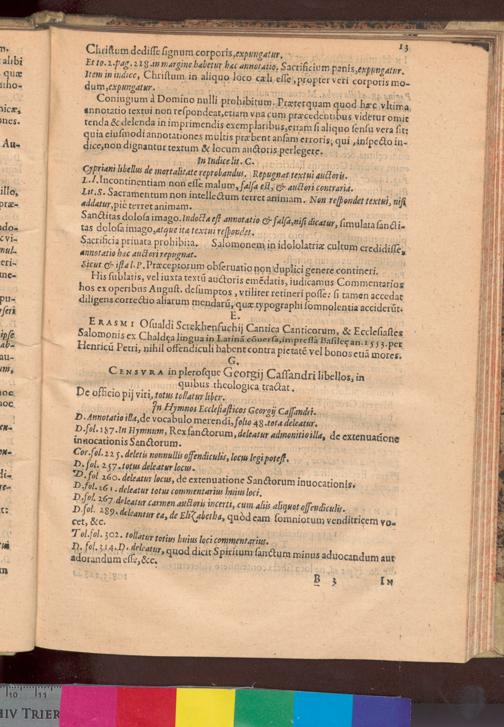 13
Christum dedisse signum corporis, expungatur.
Et to. 2. pag. 228 in margine habetur hæc annotatio, Sacrificium panis, expungatur.
Item in indice, Christum in aliquo loco cæli esse, propter veri corporis mo-
dum, expungatur.
Coniugium à Domino nulli prohibitum. Præterquam quod hæc vltima
annotatio textui non respondeat, etiam vna cum præcedentibus videtur omit
tenda & delenda in imprimendis exemplaribus, etiam si aliquo sensu vera sit:
quia eiusmodi annotationes multis præbent ansam erroris, qui, inspecto in-
dice, non dignantur textum & locum auctoris perlegere.
In Indice lit. C.
Cypriani libellus de mortalitate reprobandus. Repugnat textui auctoris.
L. I. Incontinentiam non esse malum, falsa est, & auctori contraria.
Lit. S. Sacramentum non intellectum terret animam. Non respondet textui, nisi
addatur, piè terret animam.
Sanctitas dolosa imago. Indocta est annotatio & falsa, nisi dicatur, simulata sancti-
tas dolosa imago, atque ita textui respondet.
Sacrificia priuata prohibita. Salomonem in idololatriæ cultum credidisse,
annotatio hæc auctori repugnat.
Sicut & ista l. P. Præceptorum obseruatio non duplici genere contineri.
His sublatis, vel iuxta textū auctoris emēdatis, iudicamus Commentarios
hos ex operibus August. desumptos, vtiliter retineri posse: si tamen accedat
diligens correctio aliarum mendarū, quæ typographi somnolentia acciderūt.
E.
ERASMI Osualdi Screkhensuchij Cantica Canticorum, & Ecclesiastes
Salomonis ex Chaldæa lingua in Latinā cōuersa, impressa Basileæ an. 1553. per
Henricū Petri, nihil offendiculi habent contra pietatē vel bonos etiā mores.
G.
CENSVRA in plerosque Georgij Cassandri libellos, in
quibus theologica tractat.
De officio pij viri, totus tollatur liber.
In Hymnos Ecclesiasticos Georgij Cassandri.
D. Annotatio illa, de vocabulo merendi, folio 48. tota deleatur.
D. fol. 187. In Hymnum, Rex sanctorum, deleatur admonitio illa, de extenuatione
inuocationis Sanctorum.
Cor. fol. 225. deletis nonnullis offendiculis, locus legi potest.
D. fol. 257. totus deleatur locus.
D. fol 260. deleatur locus, de extenuatione Sanctorum inuocationis.
D. fol. 261. deleatur totus commentarius huius loci.
D. fol. 267. deleatur carmen auctoris incerti, cum aliis aliquot offendiculis.
D. fol. 289. deleantur ea, de Elizabetha, quòd eam somniotum venditricem vo-
cet, &c.
Tol. fol. 302. tollatur totius huius loci commentarius.
D. fol. 314. D. deleatur, quod dicit Spiritum sanctum minus aduocandum aut
adorandum esse, &c.
B 3 IN
10 11
HIV TRIER